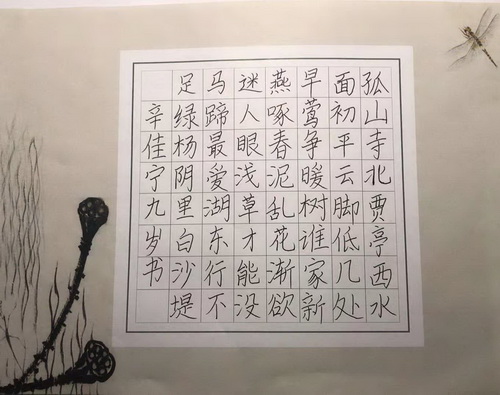 孤山寺北贾亭西水
面初平云脚低几处
早莺争暖树谁家新
燕啄春泥乱花渐欲
迷人眼浅草才能没
马蹄最爱湖东行不
足绿杨阴里白沙堤
辛佳宁九岁书